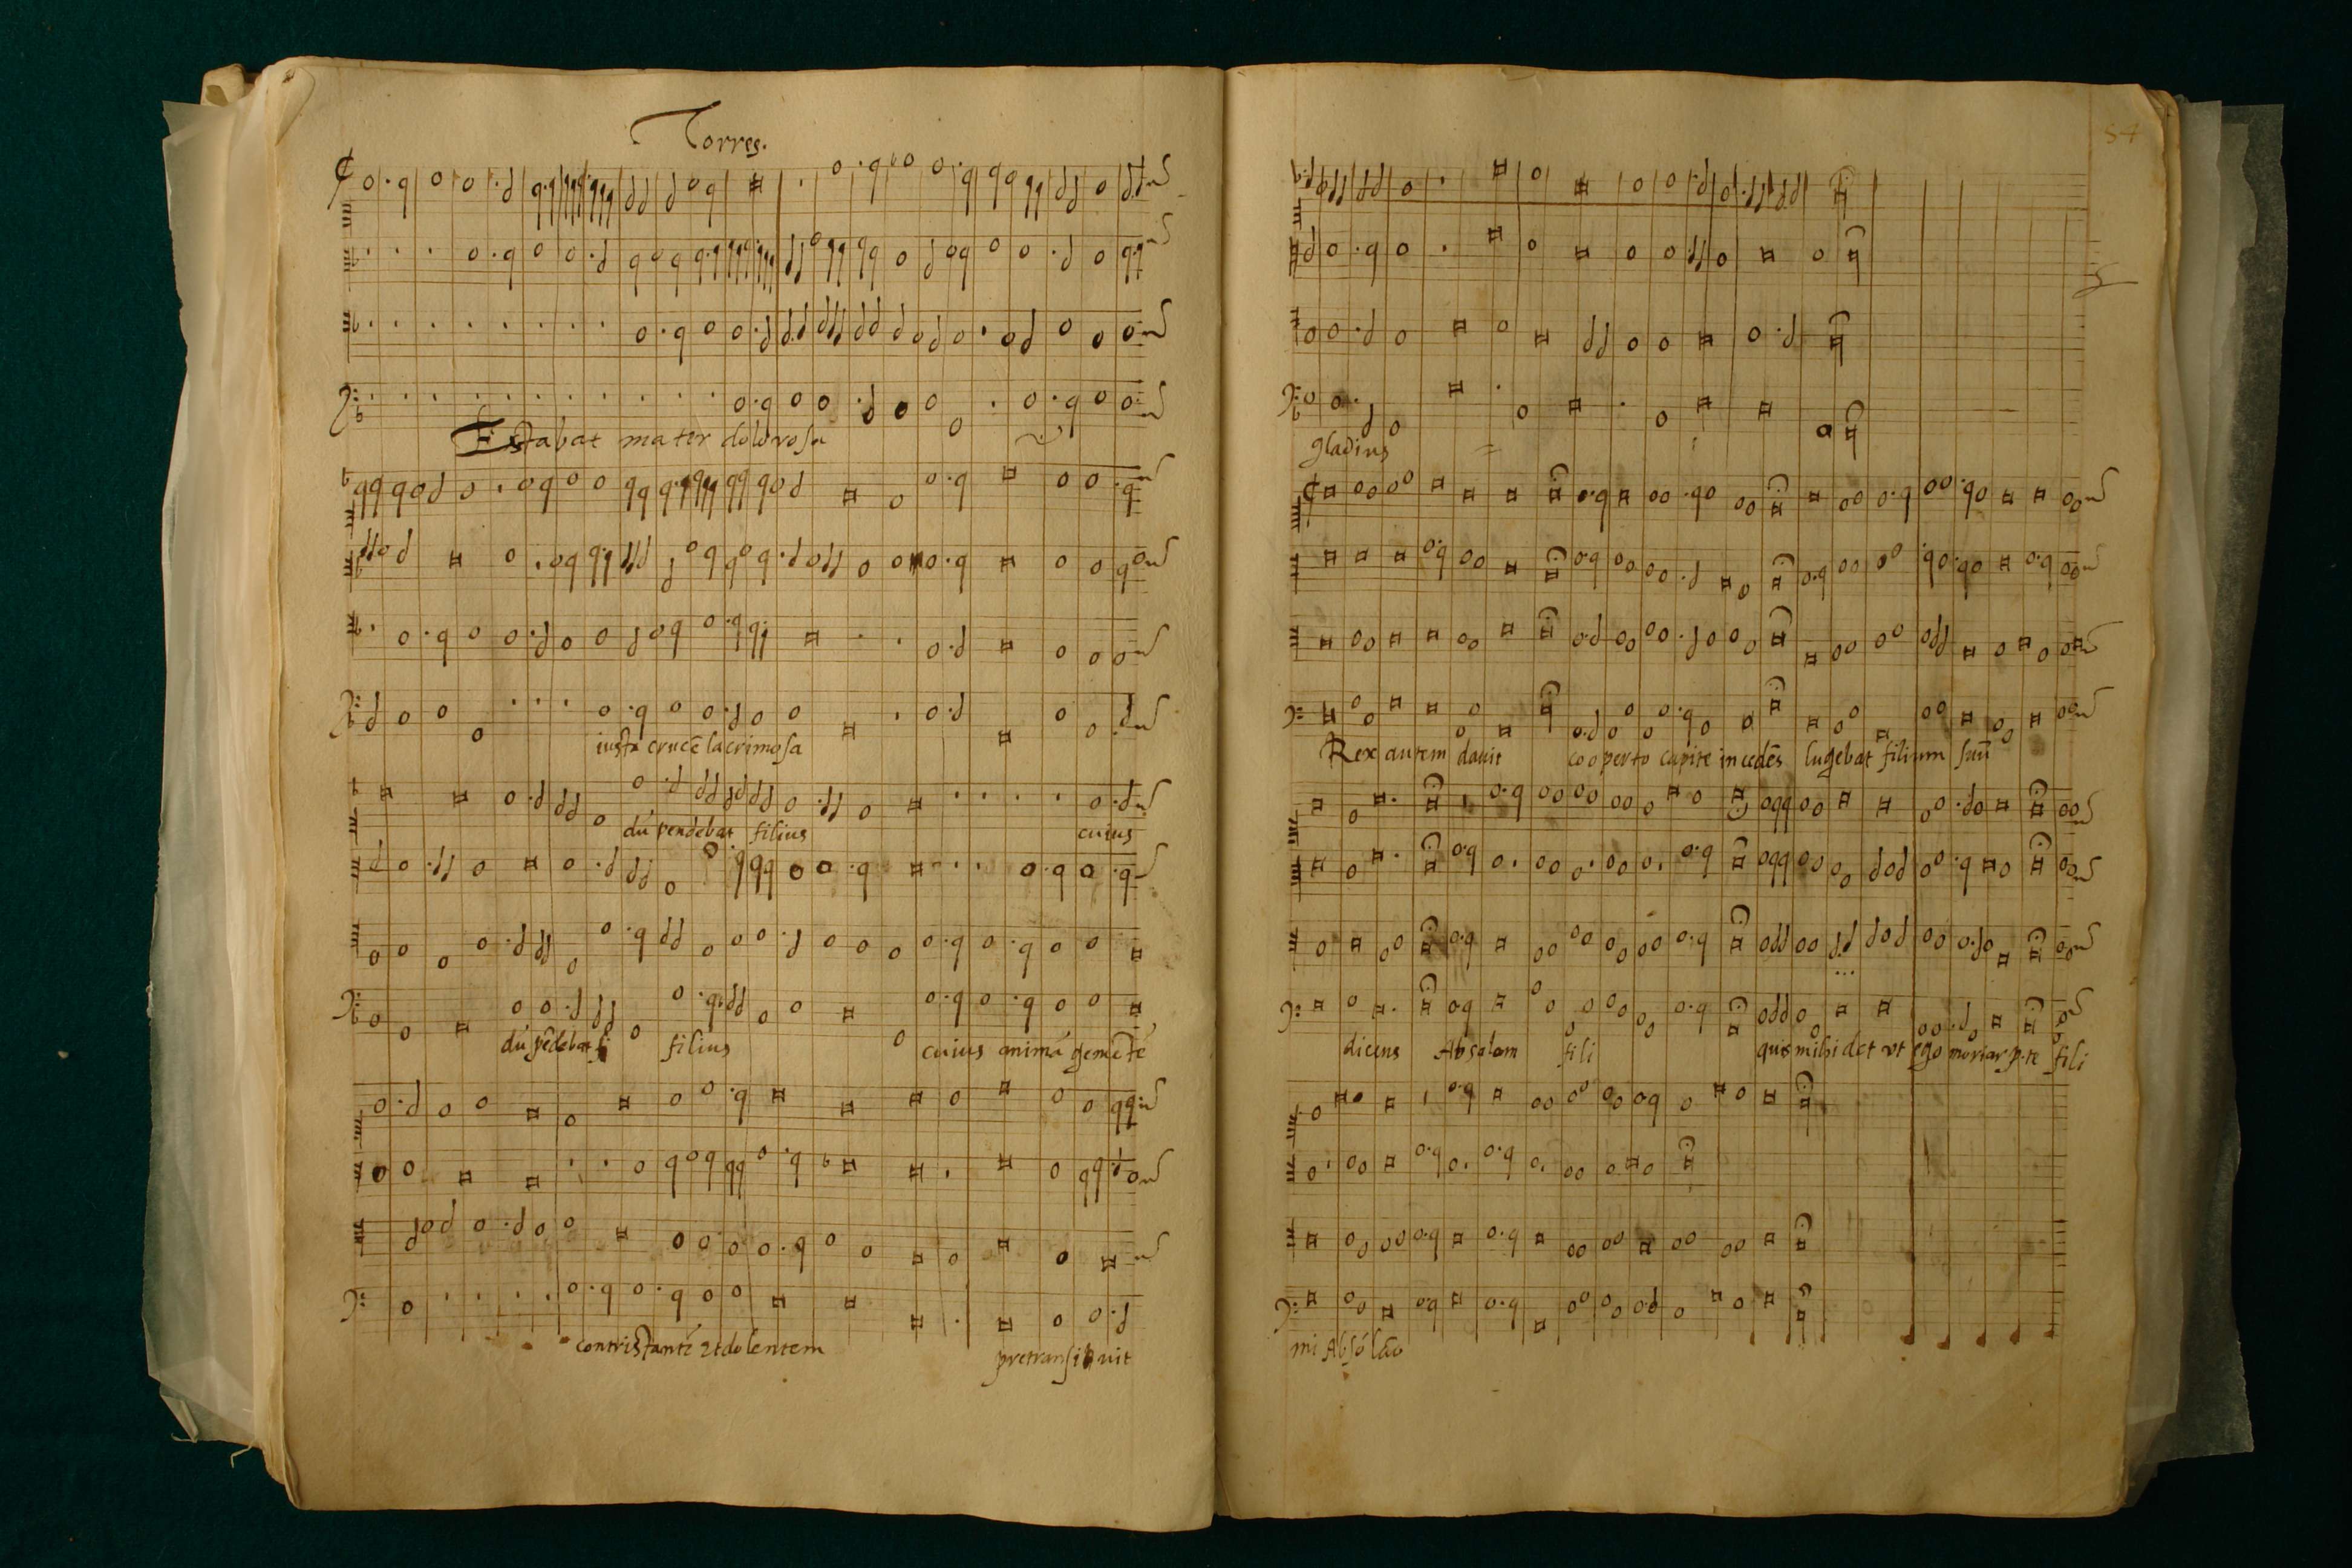 Torres.
Estabat mater dolorosa
iusta crucē lacrimosa
dū pendebat filius cuius
dū pēdebat fi filius cuius animā gemētē
contristantē et dolentem pretransiuit
54
gladius
Rex autem dauit cooperto capite incedēs lugebat filium suū
dicens Absalom fili quis mihi det vt ego moriar p. te fili
mi Absolō